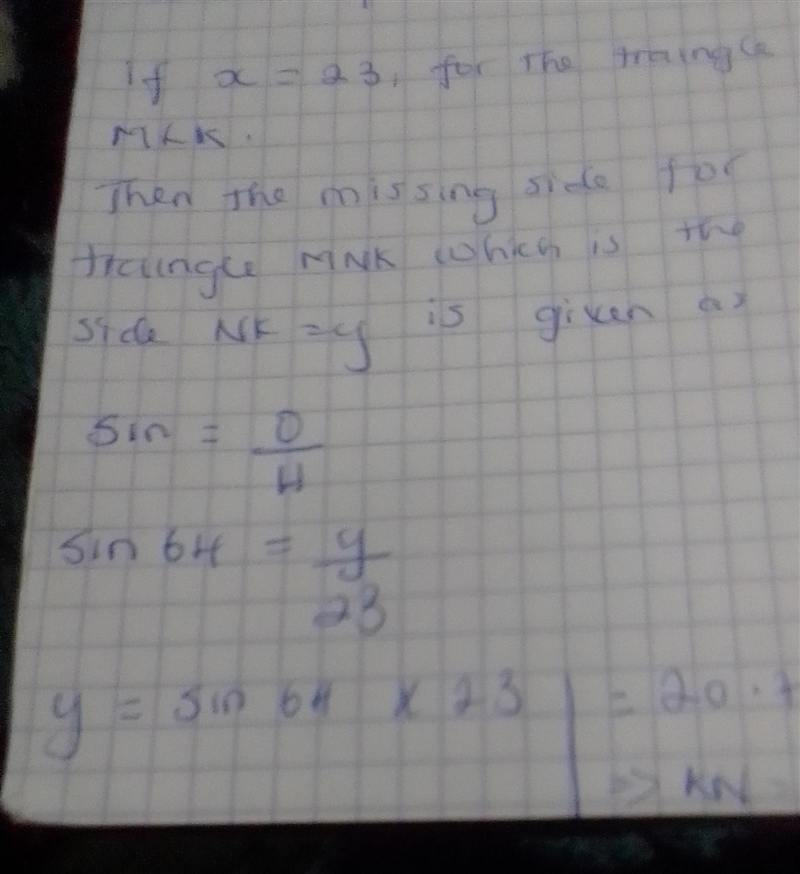 If x = 23, for the traingle
MLK.
Then the missing side for
traingle MNK which is the
side NK = y is given as
sin = O
H
sin 64 = y
23
y = sin 64 x 23 = 20.7
=> KN =